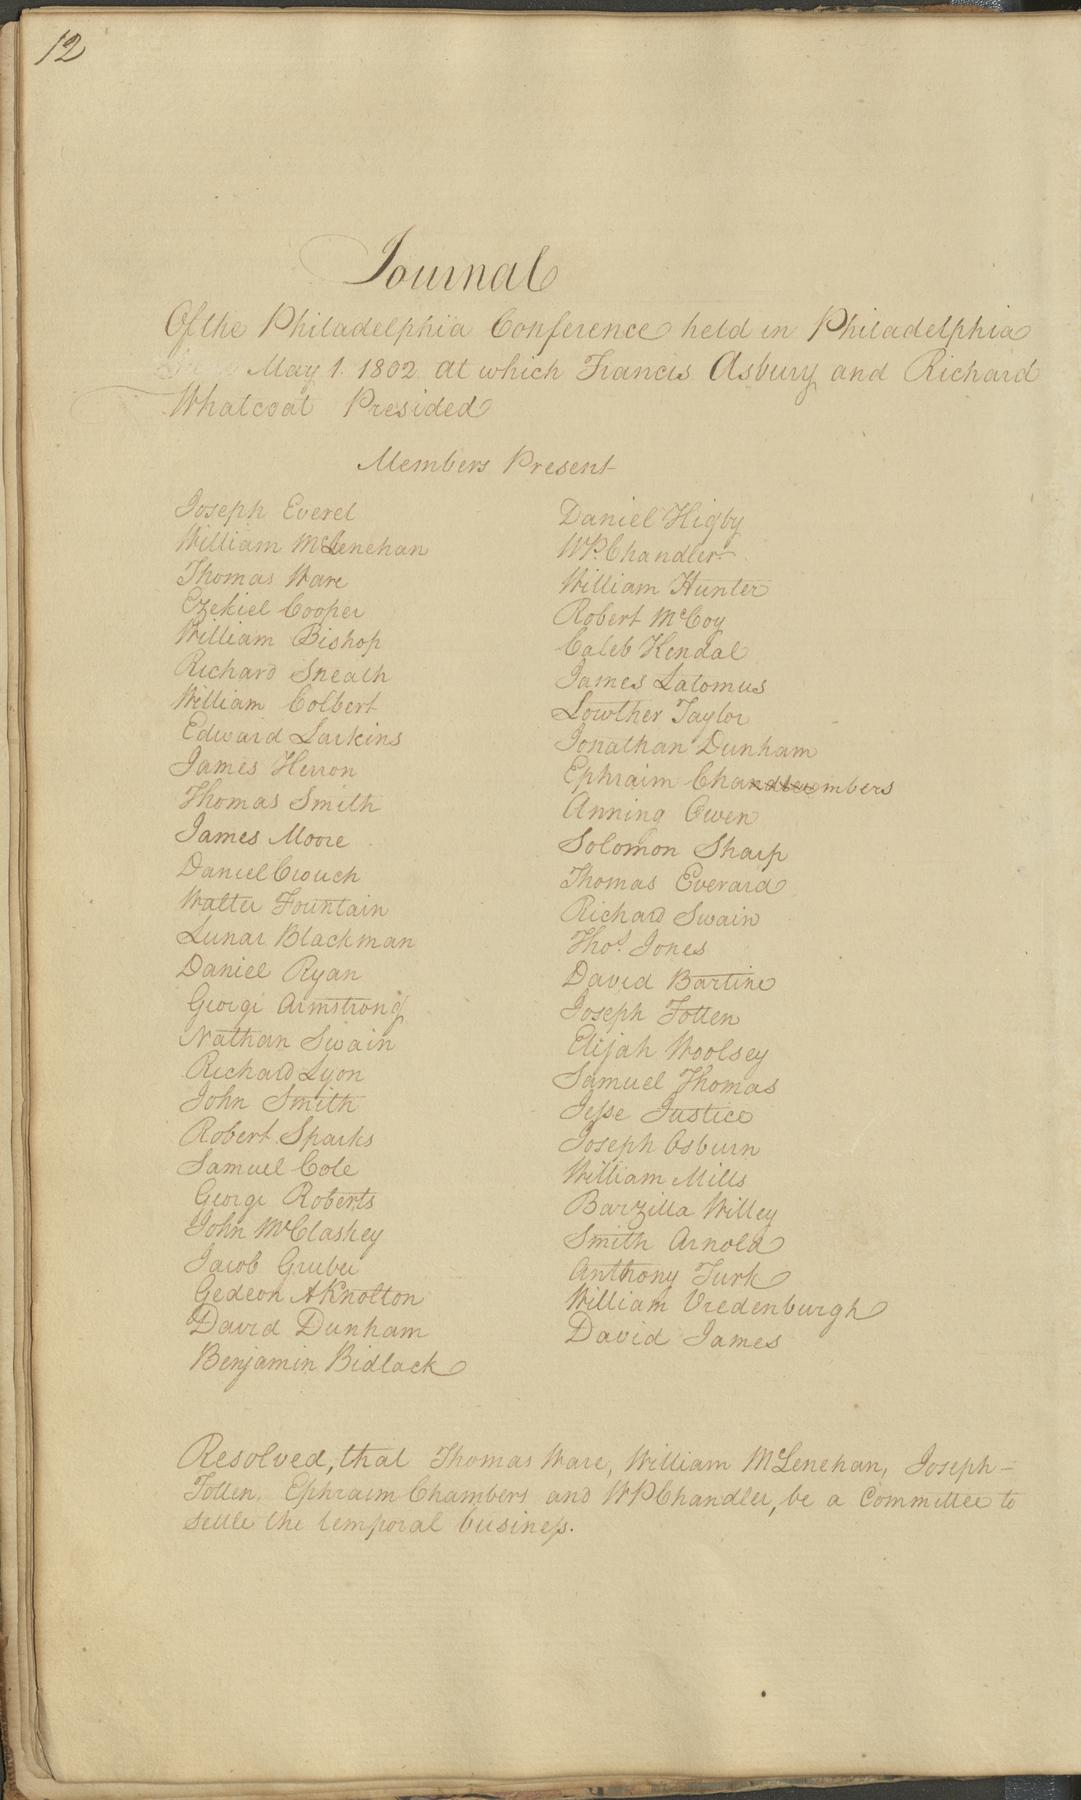 12
Journal
Of the Philadelphia Conference held in Philadelphia
May 1. 1802 at which Francis Asbury and Richard
Whatcoat Presided
Members Present
Joseph Everet
William McLenehan
Thomas Ware
Ezekiel Cooper
William Bishop
Richard Sneath
William Colbert
Edward Larkins
James Herron
Thomas Smith
James Moore
Daniel Crouch
Walter Fountain
Lunar Blackman
Daniel Ryan
George Armstrong
Nathan Swain
Richard Lyon
John Smith
Robert Sparks
Samuel Cole
George Roberts
John McClaskey
Jacob Gruber
Gedeon A Knolton
David Dunham
Benjamin Bidlack
Daniel Higby
WP. Chandler
William Hunter
Robert McCoy
Caleb Kendal
James Latomus
Lowther Taylor
Jonathan Dunham
Ephraim Chambers
Anning Owen
Solomon Sharp
Thomas Everard
Richard Swain
Thos. Jones
David Bartine
Joseph Totten
Elijah Woolsey
Samuel Thomas
Jesse Justice
Joseph Osburn
William Mills
Barzilla Willey
Smith Arnold
Anthony Turk
William Vredenburgh
David James
Resolved, that Thomas Ware, William McLenehan, Joseph-
Totten. Ephraim Chambers and WP Chandler, be a Committee to
settle the temporal business.